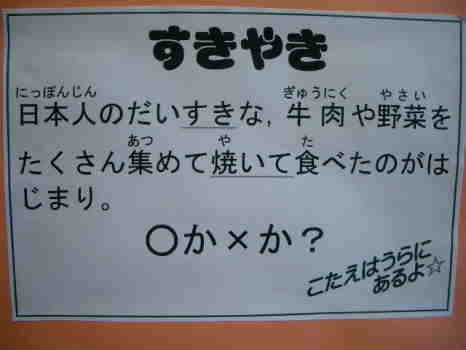 すきやき
にっぽんじん ぎゅうにく やさい
日本人のだいすきな，牛肉や野菜を
あつ や た
たくさん集めて焼いて食べたのがは
じまり。
〇か×か？
こたえはうらに
あるよ☆